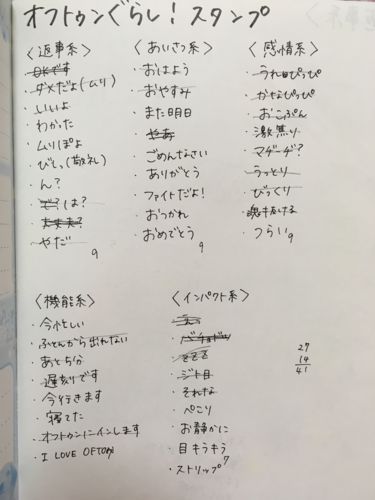 オフトゥンぐらし！スタンプ
〈返事系〉
・OKです
・ダメだよ(ムリ)
・いいよ
・わかった
・ムリぽよ
・びしっ(敬礼)
・ん？
・で？は？
・大丈夫？
・やだ
9
〈あいさつ系〉
・おはよう
・おやすみ
・また明日
・やあ
・ごめんなさい
・ありがとう
・ファイトだよ！
・おつかれ
・おめでとう
9
〈感情系〉
・うれぴっぴ
・かなぴっぴ
・おこぷん
・激焦り
・マヂーヂ？
・うっとり
・びっくり
・魂抜ける
・つらい
9
〈機能系〉
・今忙しい
・ふとんから出れない
・あと5分
・遅刻です
・今行きます
・寝てた
・オフトゥンにインします
・I LOVE OFTON
〈インパクト系〉
・ジト目
・それな
・ぺこり
・お静かに
・目キラキラ
・ストリップ
7
27
14
41